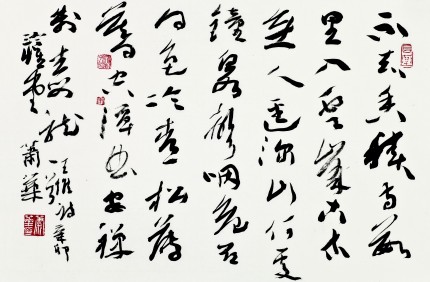 不知香積寺數
里入雲峰古木
無人徑深山何處
鐘泉聲咽危石
日色冷青松薄
暮空潭曲安禪
制毒龍
王維詩
一首